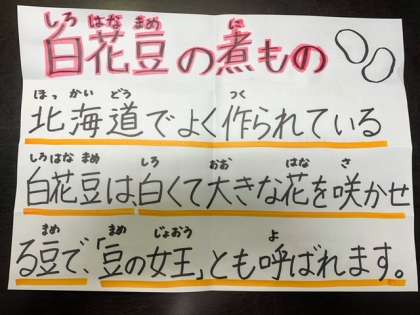 しろ はな まめ に
白花豆の煮もの
ほっ かい どう つく
北海道でよく作られている
しろはな まめ しろ おお はな さ
白花豆は、白くて大きな花を咲かせ
まめ まめ じょおう よ
る豆で、「豆の女王」とも呼ばれます。